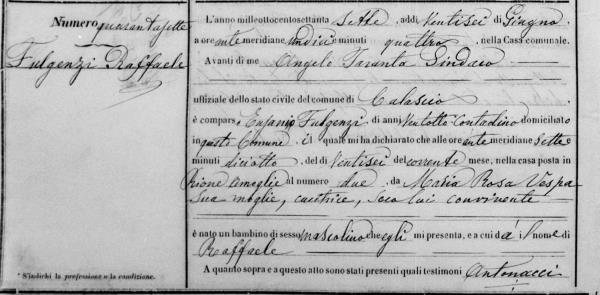 Numero quarantasette
Fulgenzi Raffaele
L'anno milleottocentosettanta sette, addì Ventisei di Giugno,
a ore ante meridiane undici e minuti quattro, nella Casa comunale.
Avanti di me Angelo Taranta Sindaco
uffiziale dello stato civile del comune di Calascio
è comparso Eugenio Fulgenzi, di anni Ventotto Contadino domiciliato
in questo Comune, il quale mi ha dichiarato che alle ore ante meridiane Sette
minuti diciotto, del dì Ventisei del corrente mese, nella casa posta in
Rione al numero due, da Maria Rosa Vespa
sua moglie, cucitrice, seco lui convivente
è nato un bambino di sesso mascolino che egli mi presenta, e a cui dà il nome di
Raffaele
A quanto sopra e a questo atto sono stati presenti quali testimoni Antonacci
* S'indichi la professione o la condizione.